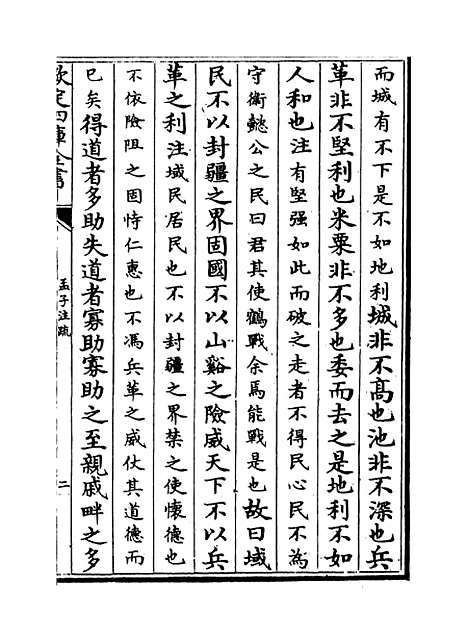 而城有不下是不如地利城非不高也池非不深也兵
革非不堅利也米粟非不多也委而去之是地利不如
人和也注有堅强如此而破之走者不得民心民不為
守衛懿公之民曰君其使鶴戰余焉能戰是也故曰域
民不以封疆之界固國不以山谿之險威天下不以兵
革之利注域民居民也不以封疆之界禁之使懷德也
不依險阻之固恃仁惠也不馮兵革之威仗其道德而
已矣得道者多助失道者寡助寡助之至親戚畔之多
欽定四庫全書
孟子注疏
二